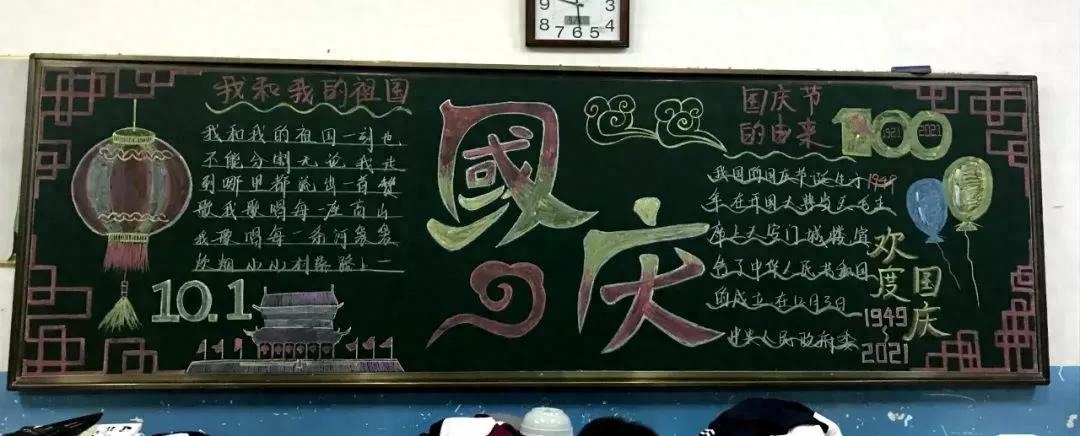 9 3
8 7 6 5 4
我和我的祖国
我和我的祖国一刻也
不能分割无论我走
到哪里都流出一首赞
歌我歌唱每一座高山
我歌唱每一条河袅袅
炊烟小小村落路上一
10.1
國庆
国庆节
的由来
100
1921 2021
我国的国庆节诞生于1949
年在开国大典 毛主
席上天安门城楼宣
告了中华人民共和国
的成立在12月3日
中央人民政府委
欢度
国庆
1949
~
2021